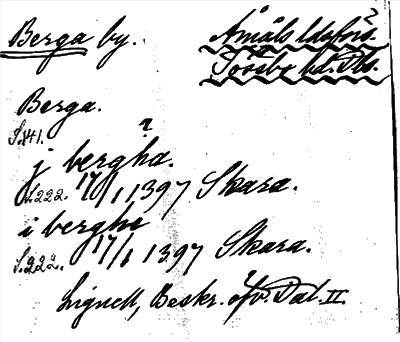 Berga by.
Åmåls ldsförs.
Tössbo hd. Dls.
Berga.
S. 141.
?
j bergha.
S. 222. 17/1 1397 Skara.
i berghe
S. 222. 17/1 1397 Skara.
Lignell, Beskr. öfv. Dal II.